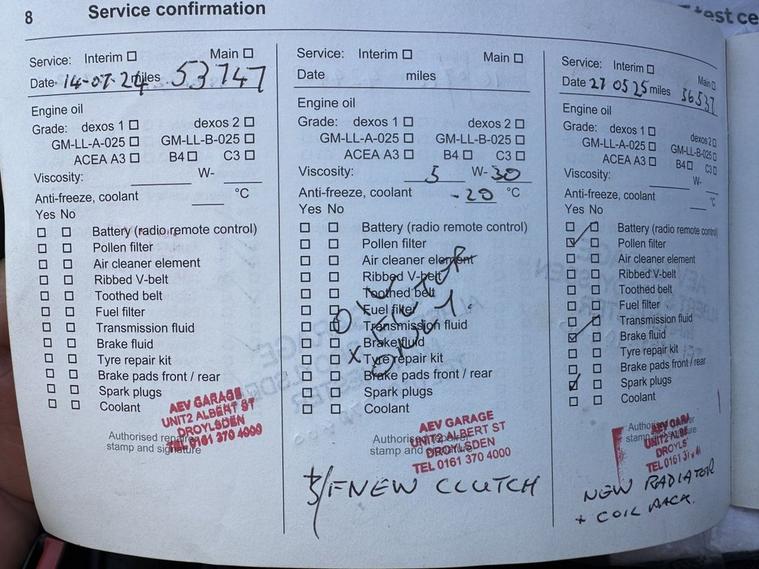 8 Service confirmation
test ce
Service: Interim ☐ Main ☐
Date 14-07-24 miles 53747
Engine oil
Grade: dexos 1 ☐ dexos 2 ☐
GM-LL-A-025 ☐ GM-LL-B-025 ☐
ACEA A3 ☐ B4 ☐ C3 ☐
Viscosity: W-
Anti-freeze, coolant °C
Yes No
Battery (radio remote control)
Pollen filter
Air cleaner element
Ribbed V-belt
Toothed belt
Fuel filter
Transmission fluid
Brake fluid
Tyre repair kit
Brake pads front / rear
Spark plugs
Coolant
Authorised repairer
stamp and signature
AEV GARAGE
UNIT2 ALBERT ST
DROYLSDEN
TEL 0161 370 4000
Service: Interim ☐ Main ☐
Date miles
Engine oil
Grade: dexos 1 ☐ dexos 2 ☐
GM-LL-A-025 ☐ GM-LL-B-025 ☐
ACEA A3 ☐ B4 ☐ C3 ☐
Viscosity: 5 W- 30
Anti-freeze, coolant -20 °C
Yes No
Battery (radio remote control)
Pollen filter
Air cleaner element
Ribbed V-belt
Toothed belt
Fuel filter
Transmission fluid
Brake fluid
Tyre repair kit
Brake pads front / rear
Spark plugs
Coolant
Authorised
stamp and
AEV GARAGE
UNIT2 ALBERT ST
DROYLSDEN
TEL 0161 370 4000
NEW CLUTCH
Service: Interim ☐ Main ☐
Date 27 05 25 miles 56537
Engine oil
Grade: dexos 1 ☐ dexos 2 ☐
GM-LL-A-025 ☐ GM-LL-B-025 ☐
ACEA A3 ☐ B4 ☐ C3 ☐
Viscosity: W-
Anti-freeze, coolant °C
Yes No
Battery (radio remote control)
Pollen filter
Air cleaner element
Ribbed V-belt
Toothed belt
Fuel filter
Transmission fluid
Brake fluid
Tyre repair kit
Brake pads front / rear
Spark plugs
Coolant
Authorised
stamp and signature
AEV GARA
UNIT2 ALBE
DROYLS
TEL 0161 3
NEW RADIATOR
+ COIL PACK.